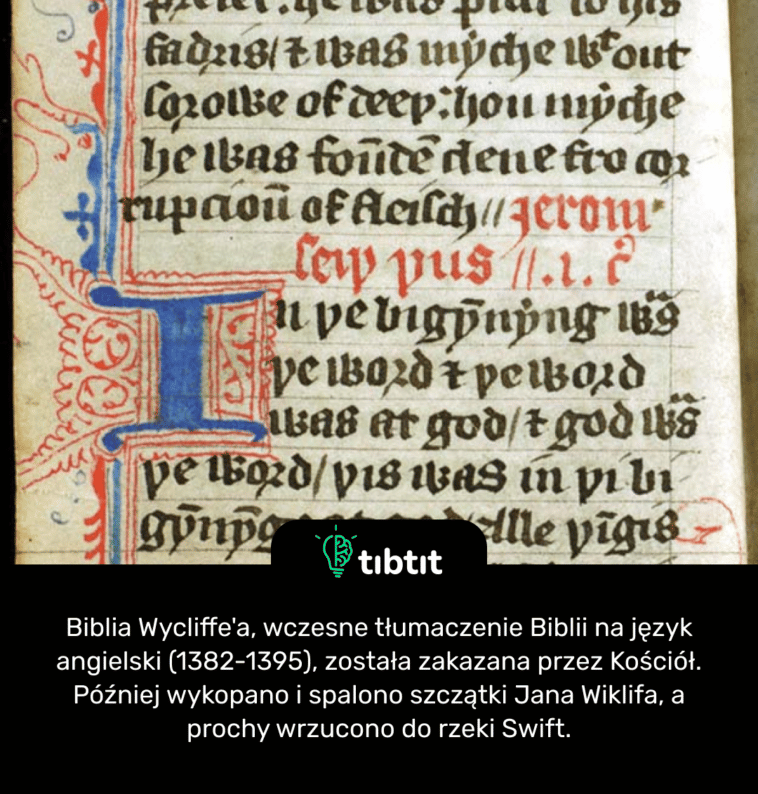 fadris/ ⁊ was myche wᵗout
sorowe of deeþ: hou myche
he was foūdē clene fro cor
rupcioū of fleisch// Jerom
// .1. c̉
In þe bigyn̄yng wᵃs
þe word ⁊ þe word
was at god/ ⁊ god wᵃs
þe word/ þis was in þi bi
gȳnȳg
alle þīgis
tıbtıt
Biblia Wycliffe'a, wczesne tłumaczenie Biblii na język
angielski (1382-1395), została zakazana przez Kościół.
Później wykopano i spalono szczątki Jana Wiklifa, a
prochy wrzucono do rzeki Swift.